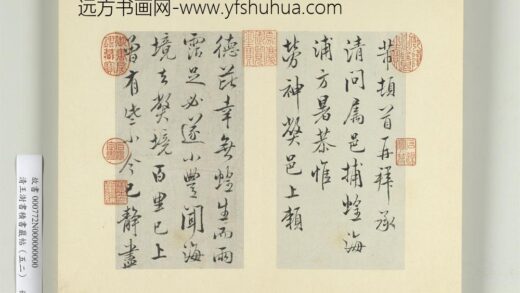 远方书画网-www.yfshuhua.com
芾頓首再拜承
清問屬邑捕蝗海
浦方暑恭惟
勞神弊邑上賴
德芘幸無蝗生而雨
霑足必遂小豐聞海
境去弊境百里已上
曾有些小今已靜盡
故書 000772N00000000
清王澍書積書巖帖（五二）